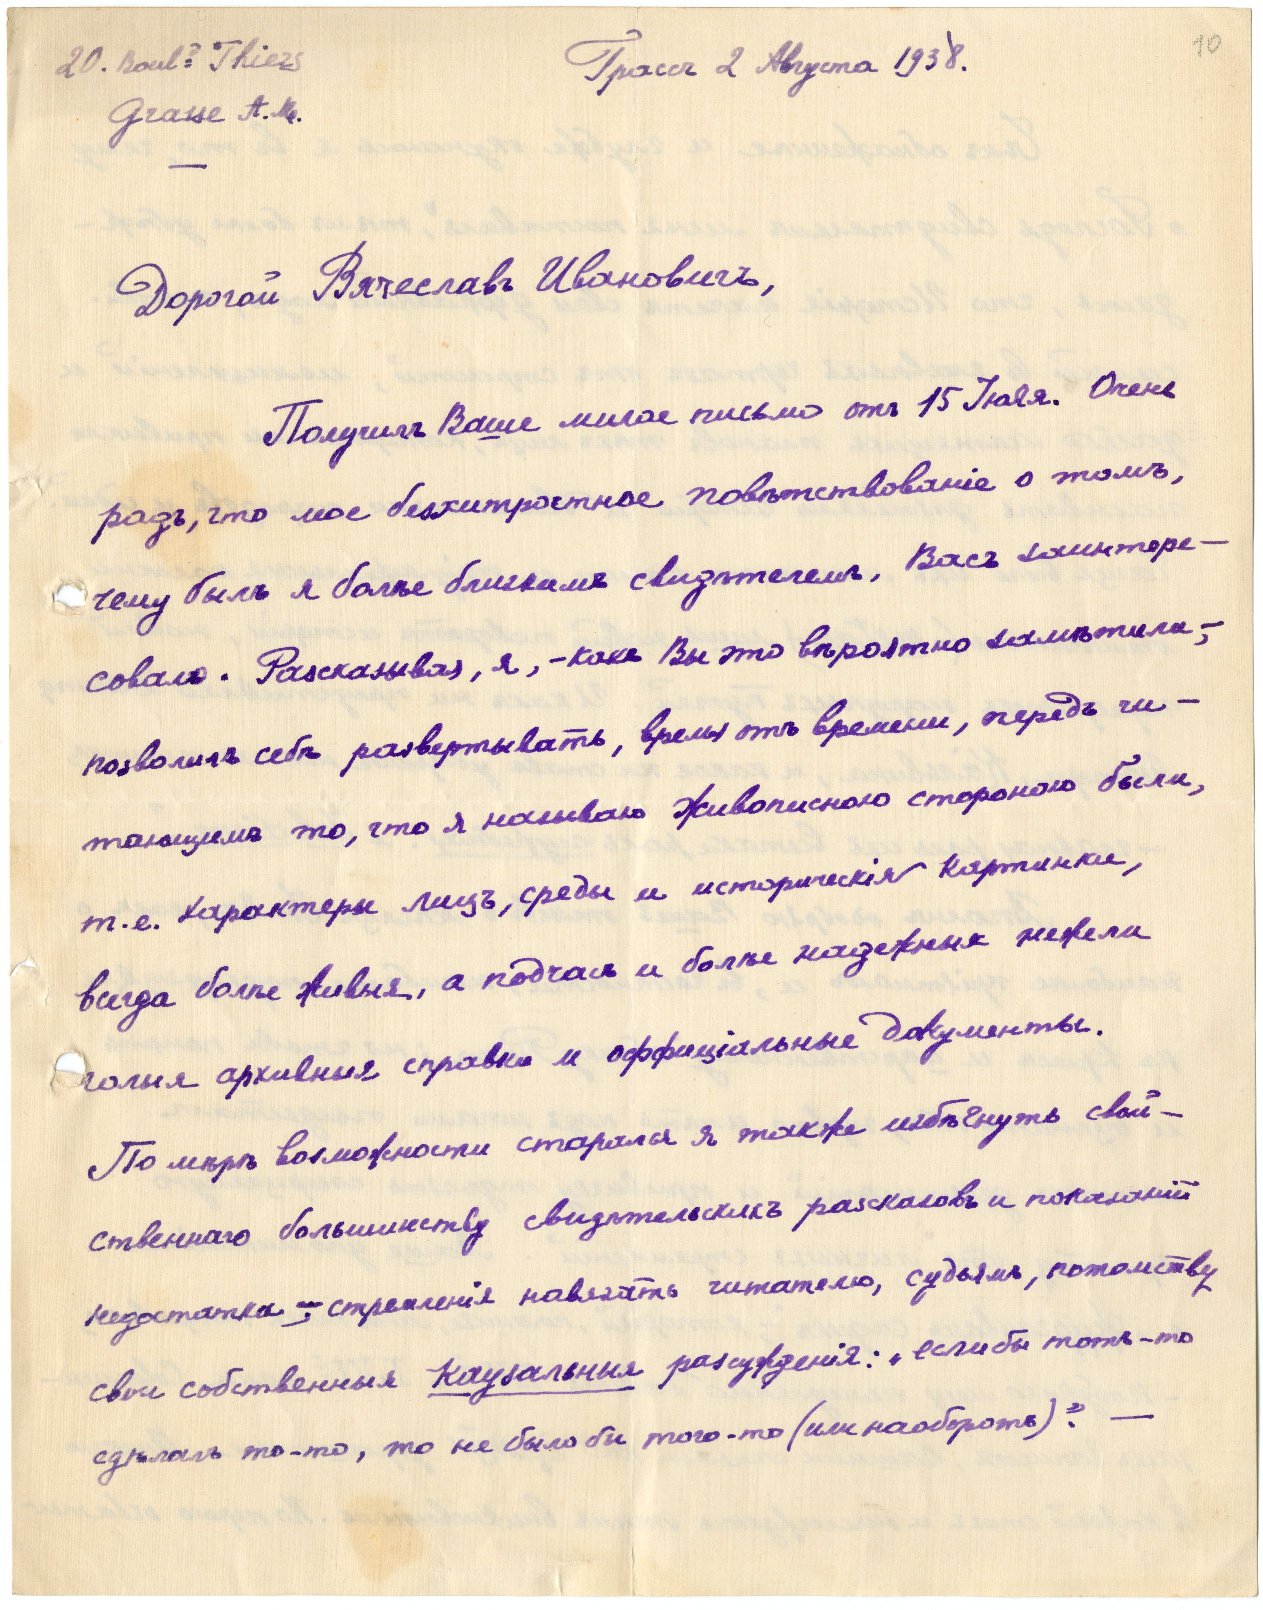 10
20. Boul.d Thiers
Грассъ 2 Августа 1938.
Grasse A. M.
Дорогой Вячеславъ Ивановичъ,
Получилъ Ваше милое письмо отъ 15 Іюля. Очень
радъ, что мое безхитростное повѣтствованіе о томъ,
чему былъ я болѣе близкимъ свидѣтелемъ, Васъ заинтере-
совало. Разсказывая, я, - какъ Вы это вѣроятно замѣтили, -
позволилъ себѣ развертывать, время отъ времени, передъ чи-
тающимъ то, что я называю живописною стороною были,
т.е. характеры лицъ, среды и историческія картинки,
всегда болѣе живыя, а подчасъ и болѣе надежныя нежели
голыя архивныя справки и оффиціальные документы.
По мѣрѣ возможности старался я также избѣгнуть свой-
ственнаго большинству свидѣтельскихъ разсказовъ и показаній
недостатка - стремленія навязать читателю, судьямъ, потомству
свои собственныя каузальныя разсужденія: „если бы тотъ-то
сдѣлалъ то-то, то не было бы того-то (или наоборотъ)". —